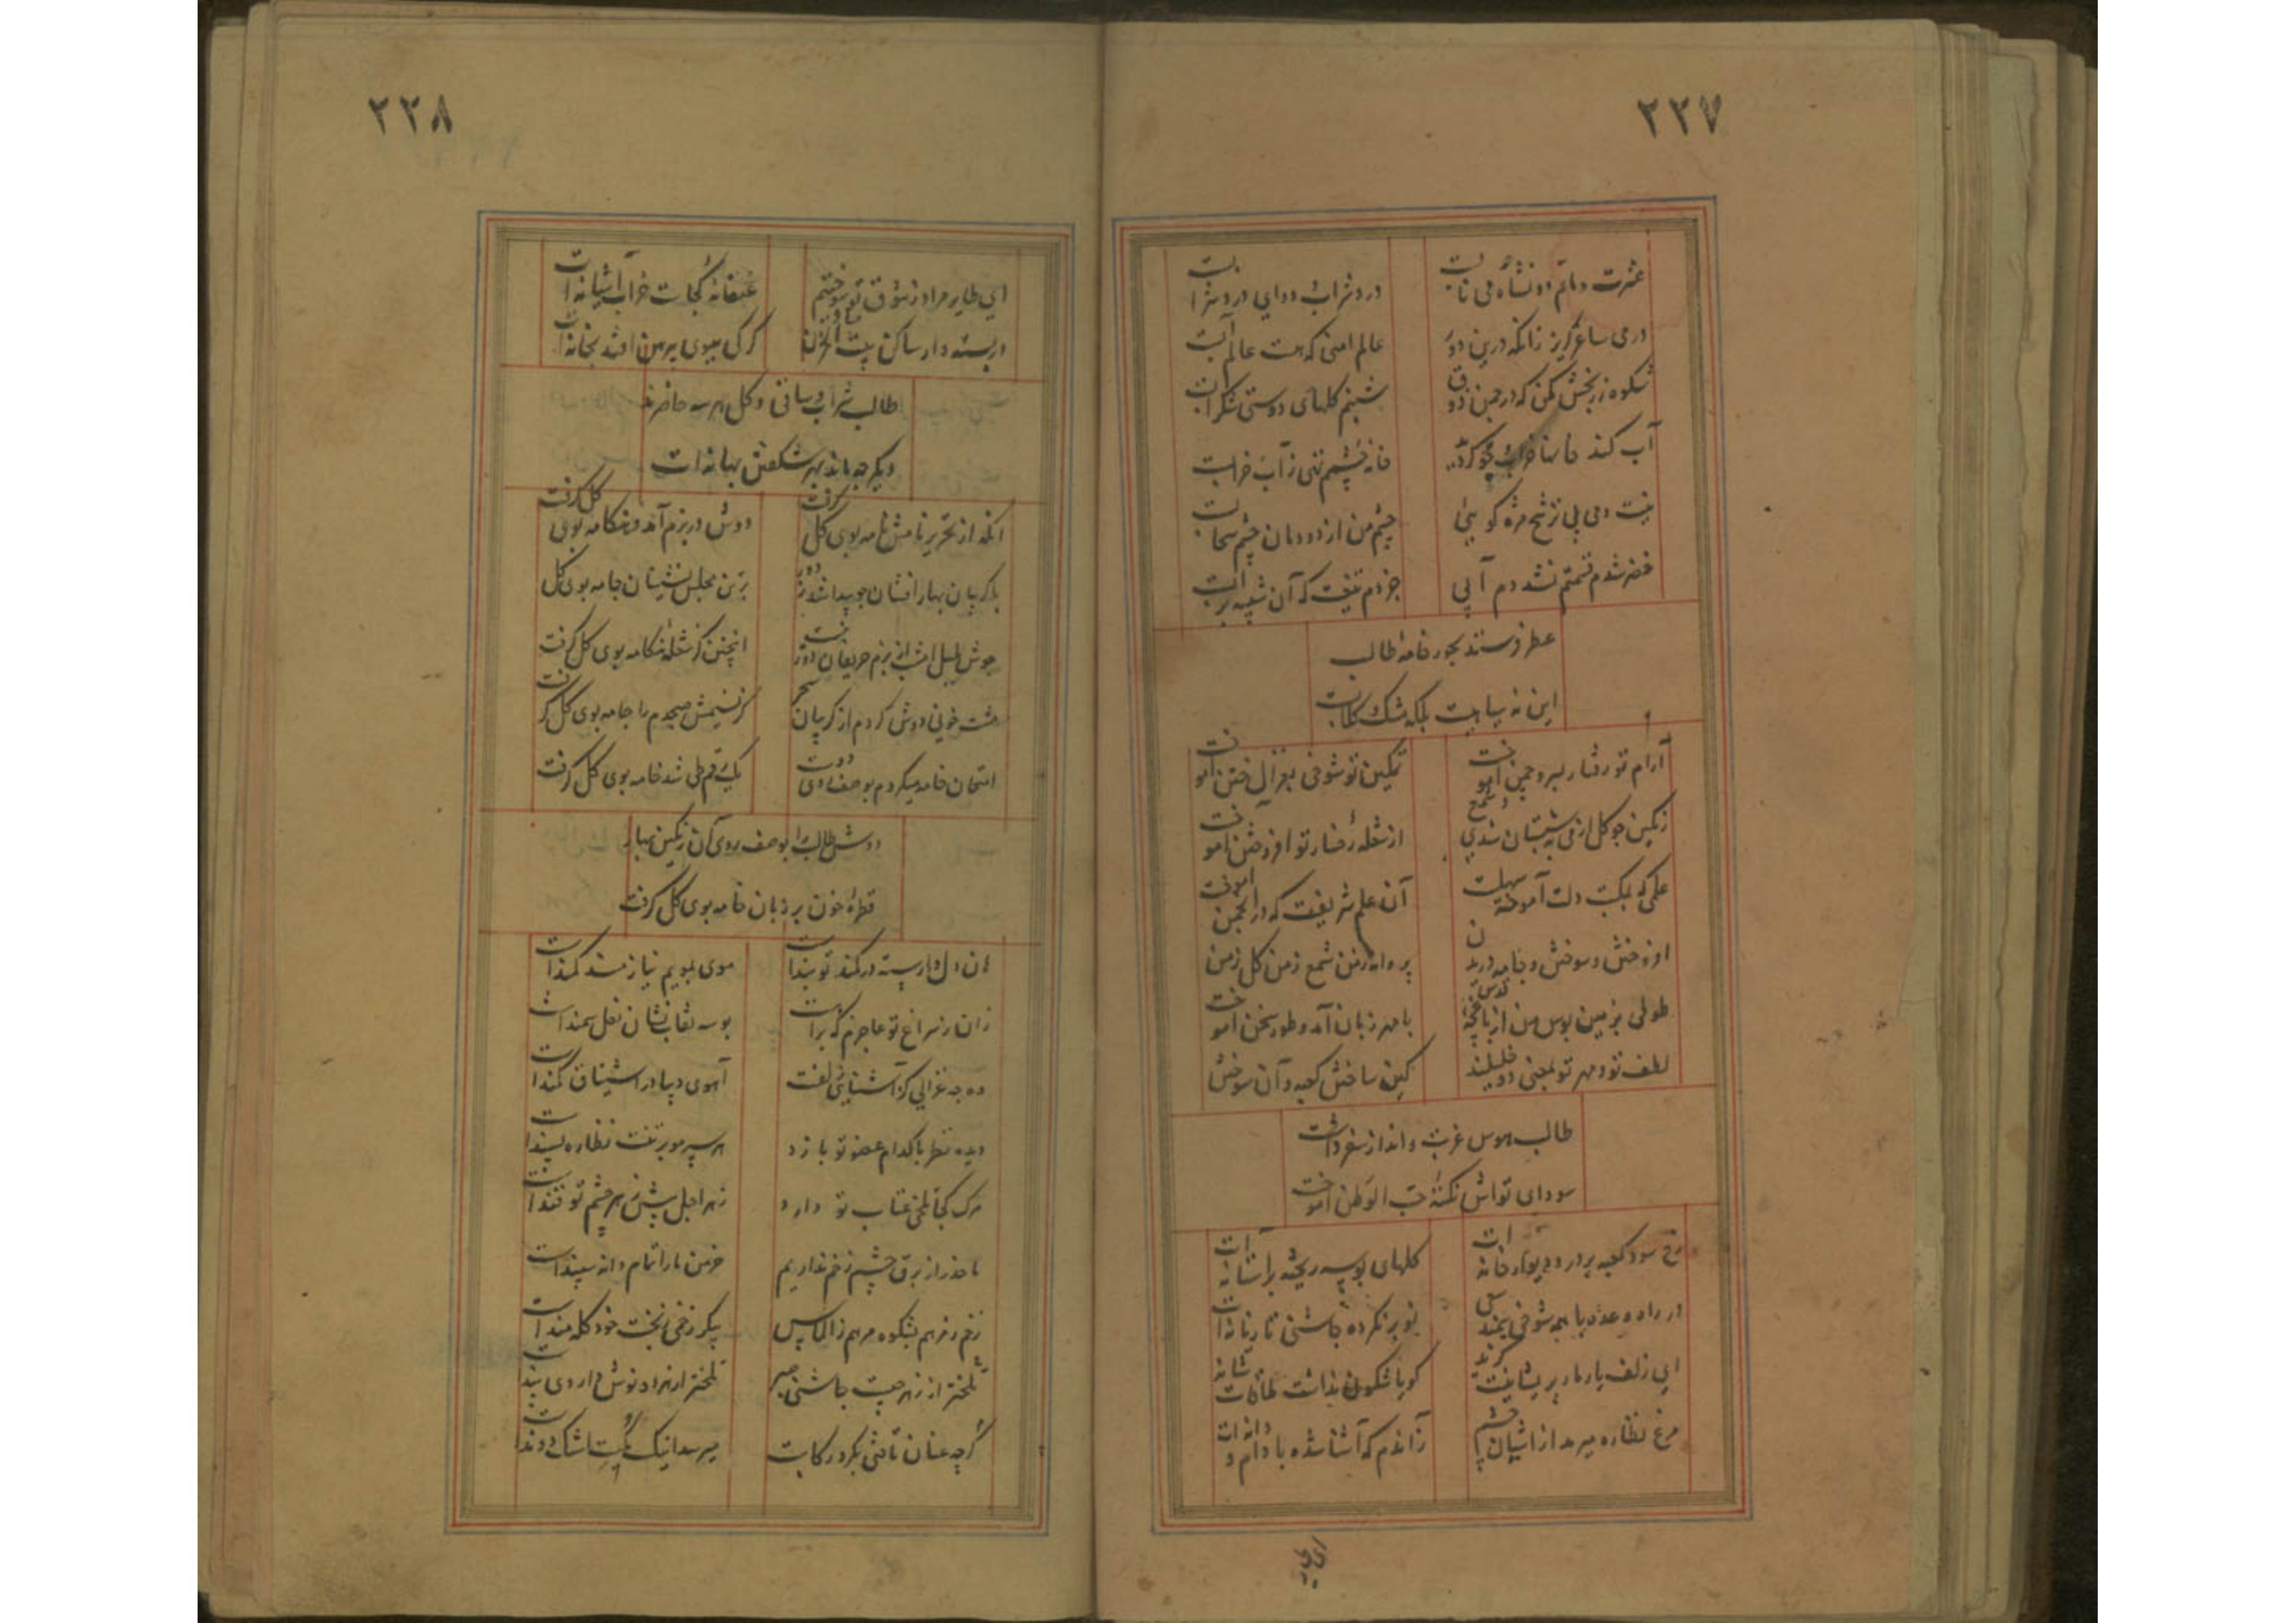 ۲۲۷
عشرت و ماتم دو نشأه می نابست
درد شراب و دوای درد شرابست
درمی ساغر گریز زانکه درین دور
عالم امنی که هست عالم آبست
شکوه ز رنجش مکن که در چمن ذوق
شبنم گلهای دوستی شکرابست
آب کند خانها خراب چو گردد
خانه چشمم تنی ز آب خرابست
نیست دمی بی ترشح مژه گویی
چشم من از دودمان چشم سحابست
خضر شدم قسمتم نشد دم آبی
جز دم تیغت که آن شبیه برآبست
عطر فرستد بحور خامه طالب
این نه سیاهیست بلکه مشک گلابست
آرام تو رفتار بسرو چمن آموخت
تمکین تو شوخی بغزال ختن آموخت
رنگین چو گل از می به شبستان شدی و شمع
از شعله رخسار تو افروختن آموخت
علمی که بمکتب دلت آموخته سهلست
آن علم شریفست که در انجمن آموخت
افروختن و سوختن و جامه دریدن
پروانه ز من شمع ز من گل ز من آموخت
طوطی بزمین بوس من از باغچه قدس
با مهر زبان آمد و طور سخن آموخت
لطف تو و مهر تو بمعنی دو خلیلند
کین ساختن کعبه و آن سوختن
طالب هوس غربت و انداز سفر داشت
سودای تواش نکته حب الوطن آموخت
رخ سود کعبه بر در و دیوار خانه است
گلهای بوسه ریخته بر آستانه است
در راه وعده با همه شوخی سمند
نوبر نکرده چاشنی تازیانه است
ای زلف یار بار پریشانیت گزند
گویا شگون نداشت ملاقات شانه
مرغ نظاره میرمد از آشیان چشم
زاندم که آشنا شده با دام و دانه است
ای طایر
۲۲۸
ای طایر مراد ز شوق تو سوختیم
عنقا نه کجاست خراب آشیانه ات
در بسته دار ساکن بیت الحزن
کز کس ببوی پیرهن افتد بخانه ات
طالب شراب و ساقی و گل هر سه حاضرند
دیگر چه ماند بهر شکفتن بهانه ات
آنکه از تحریر نامش نامه بوی گل گرفت
دوش در بزم آمد و هنگامه بوی گل گرفت
با گریبان بهار افشان چو پیدا شد ز دور
بر تن مجلس نشینان جامه بوی گل
جوش بلبل امشب از بزم حریفان دور نیست
اینچنین کز شعله هنگامه بوی گل گرفت
مشت خونی دوش کردم از گریبان سحر
کز نسیمش صبحدم را جامه بوی گل گرفت
امتحان خامه میکردم بوصف روی دوست
یک رقم طی شد خامه بوی گل گرفت
دوش طالب بوصف روی آن رنگین عبار
قطره خون بر زبان خامه بوی گل گرفت
آن دل وارسته در کمند تو بندست
موی بمویم نیازمند کمندست
زان ز سراغ تو عاجزم که براهت
بوسه نقاب نشان نعل سمندست
وه چه غزالی کز آشنایی زلفت
آهوی دیبا در اشتیاق کمندست
دیده نظر با کدام عضو تو بازد
هر سر مو بر تنت نظاره پسندست
مرگ کجا تلخی عتاب تو دارد
زهر اجل پیش زهر چشم تو قندست
ما حذر از برق چشم زخم نداریم
خرمن ما را تمام دانه سپندست
زخم ز مرهم بشکوه مرهم ز الماس
پیکر زخمی ز بخت خود گله مندست
تلختر از زهر چیست چاشنی صبر
تلختر از زهر و نوش داروی پندست
گرچه عنان تافتی بگرد رکابت
میرسد اینک که اشک دوندست